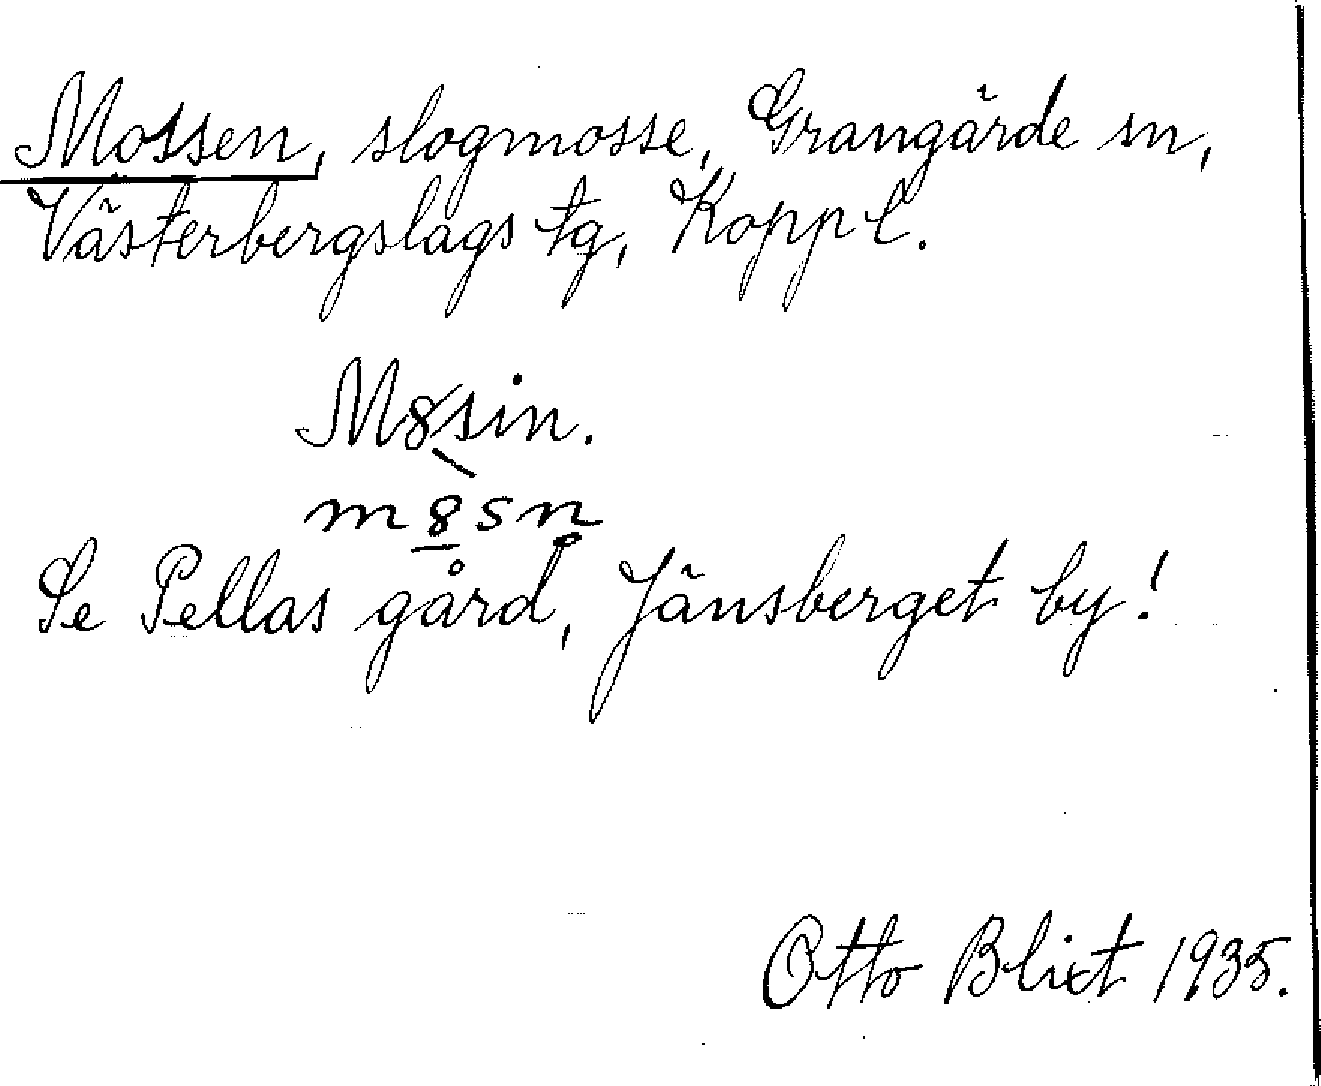 Mossen, slogmosse, Grangärde sn,
Västerbergslags tg, Kopp l.
M8sin.
m8sn
Se Pellas gård, Jänsberget by!
Otto Blixt 1935.